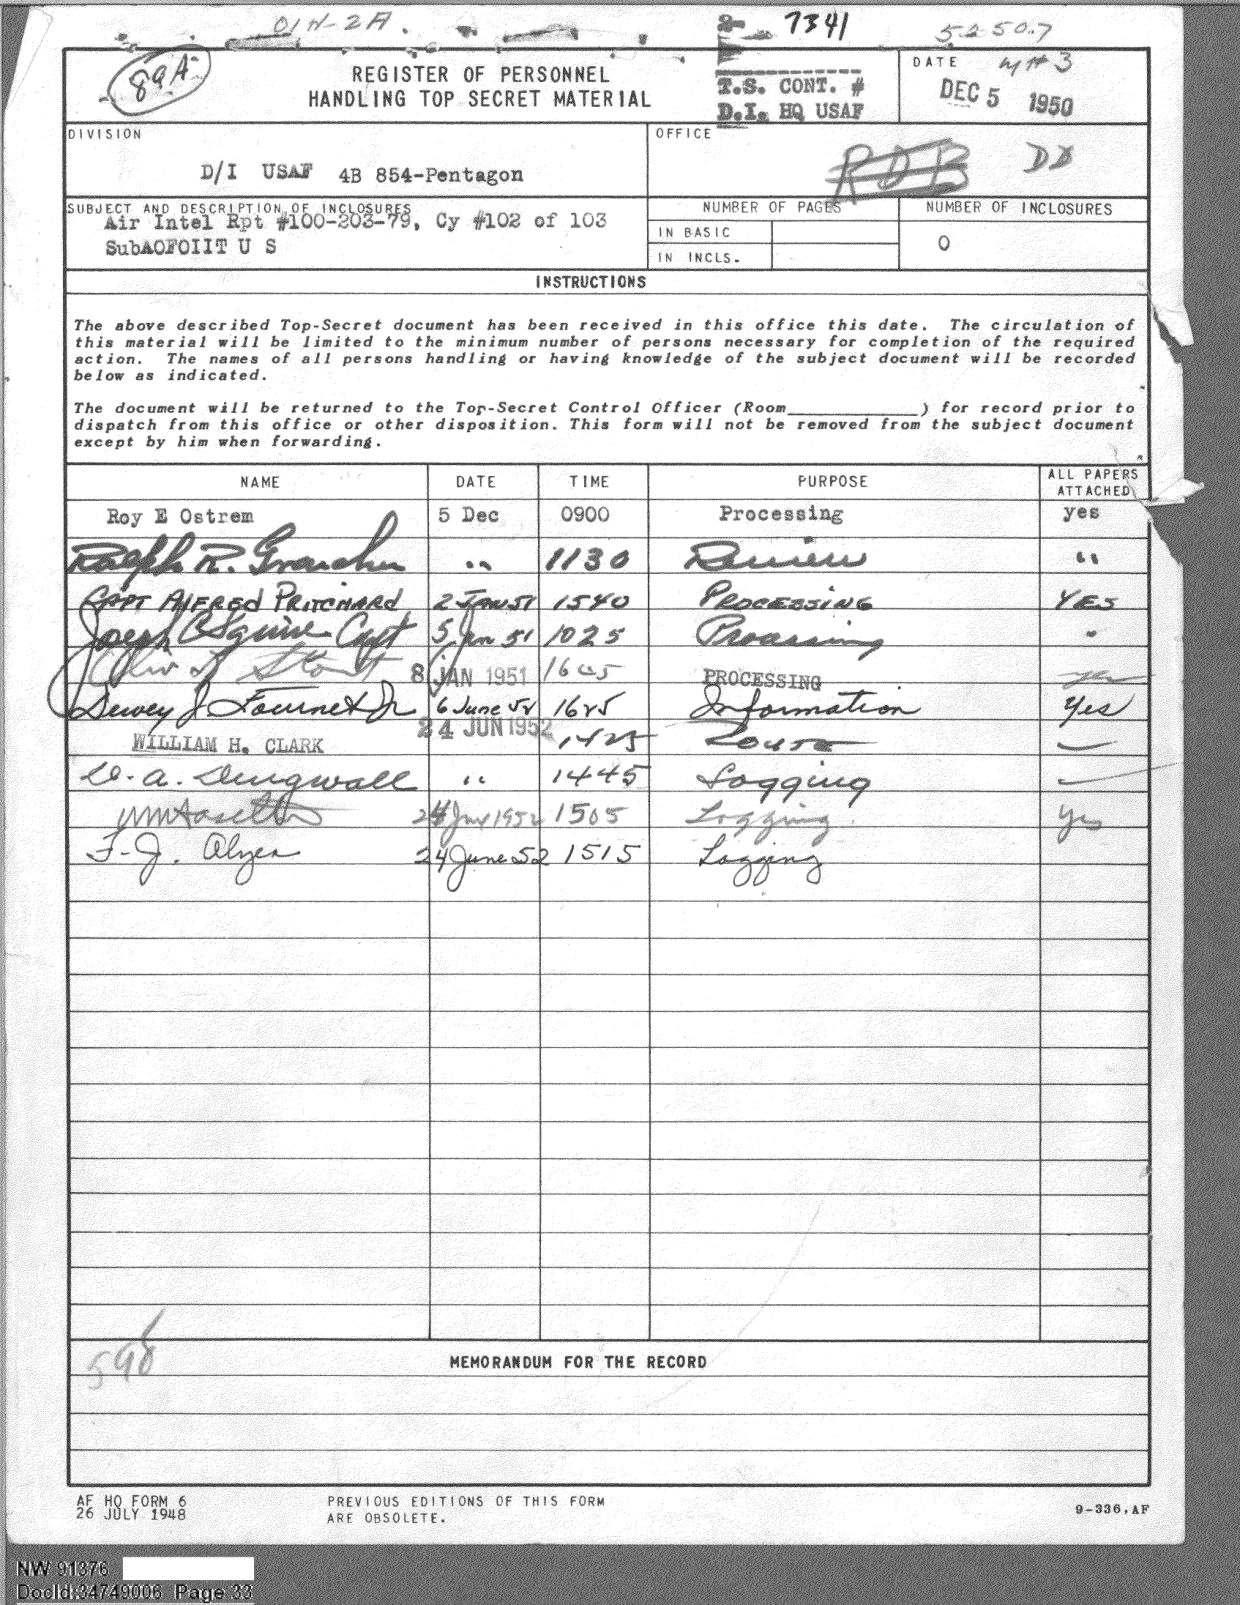 01N-2A. 2- 7341 52507
89A REGISTER OF PERSONNEL DATE
HANDLING TOP SECRET MATERIAL T.S. CONT. # DEC 5 1950
D.I. HQ USAF
DIVISION OFFICE
D/I USAF 4B 854-Pentagon RDB DD
SUBJECT AND DESCRIPTION OF INCLOSURES NUMBER OF PAGES NUMBER OF INCLOSURES
Air Intel Rpt #100-203-79, Cy #102 of 103 IN BASIC 0
SubAOFOIIT U S IN INCLS.
INSTRUCTIONS
The above described Top-Secret document has been received in this office this date. The circulation of
this material will be limited to the minimum number of persons necessary for completion of the required
action. The names of all persons handling or having knowledge of the subject document will be recorded
below as indicated.
The document will be returned to the Top-Secret Control Officer (Room____________) for record prior to
dispatch from this office or other disposition. This form will not be removed from the subject document
except by him when forwarding.
NAME DATE TIME PURPOSE ALL PAPERS ATTACHED
Roy E Ostrem 5 Dec 0900 Processing yes
Ralph R. " 1130 Review "
CAPT ALFRED PRITCHARD 2 JAN 51 1540 PROCESSING YES
Joseph C Squire Capt 5 Jan 51 1025 Processing "
8 JAN 1951 PROCESSING
Dewey J Fournet Jr 6 June 52 1625 Information Yes
WILLIAM H. CLARK 24 JUN 1952 1425 Route
D. A. Dingwall " 1445 Logging
24 Jun 1952 1505 Logging yes
F. J. 24 June 52 1515 Logging
598
MEMORANDUM FOR THE RECORD
AF HQ FORM 6 PREVIOUS EDITIONS OF THIS FORM 9-336,AF
26 JULY 1948 ARE OBSOLETE.
NW 91376
DocId:34749006 Page 33